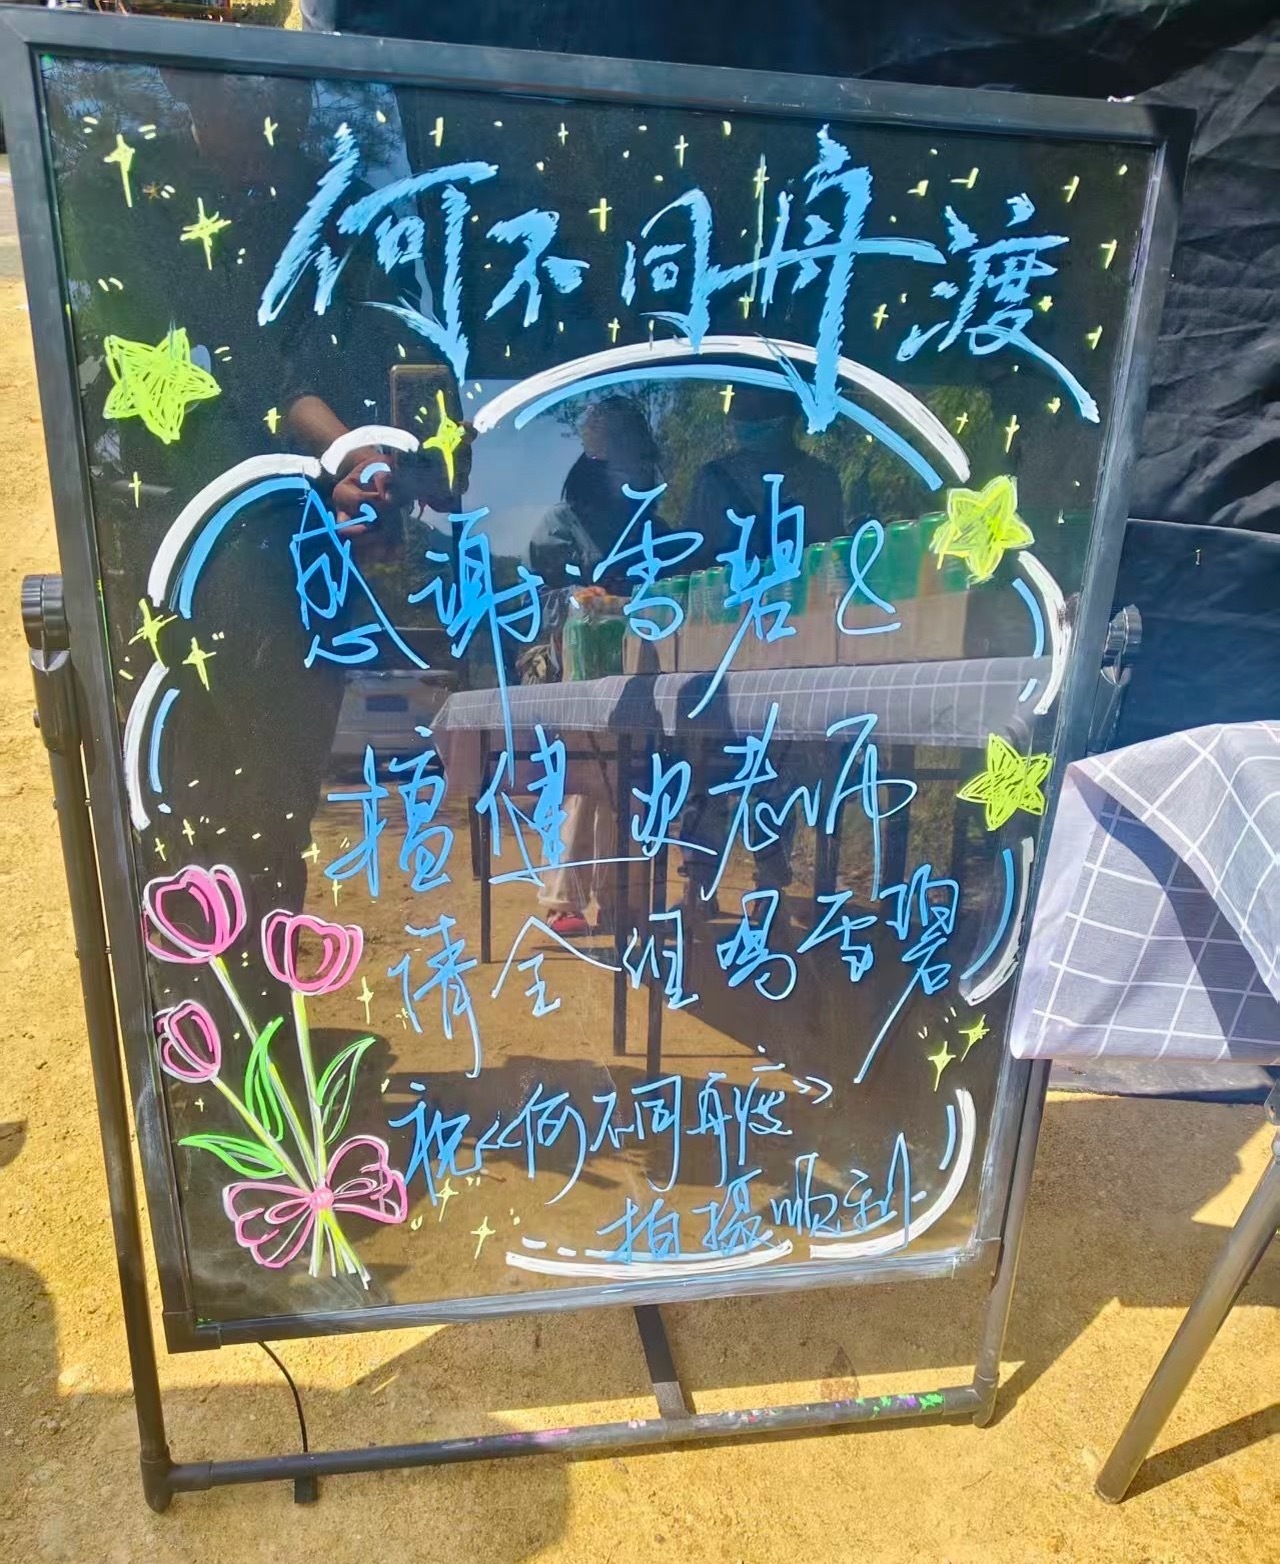 何不同舟渡
感谢:雪碧&
檀健次老师
请全组喝雪碧
祝《何不同舟渡》
拍摄顺利